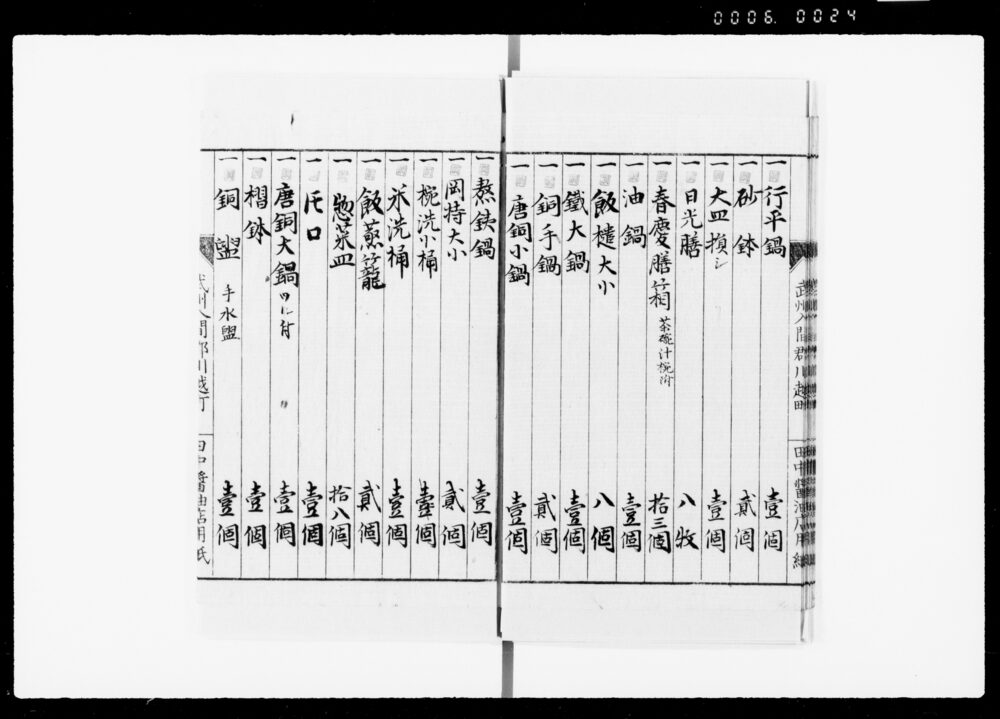 0006. 0024
武州入間郡川越町
田中醤油店用紙
一 行平鍋 壹個
一 砂鉢 貳個
一 大皿損シ 壹個
一 日光膳 八枚
一 春慶膳箱 茶碗汁椀附 拾三個
一 油鍋 壹個
一 飯櫃大小 八個
一 鐵大鍋 壹個
一 銅手鍋 貳個
一 唐銅小鍋 壹個
一 熬鉄鍋 壹個
一 岡持大小 貳個
一 椀洗小桶 壹個
一 米洗桶 壹個
一 飯蒸籠 貳個
一 惣菜皿 拾八個
一 片口 壹個
一 唐銅大鍋 壹個
一 摺鉢 壹個
一 銅盥 手水盥 壹個
武州入間郡川越町
田中醤油店用紙